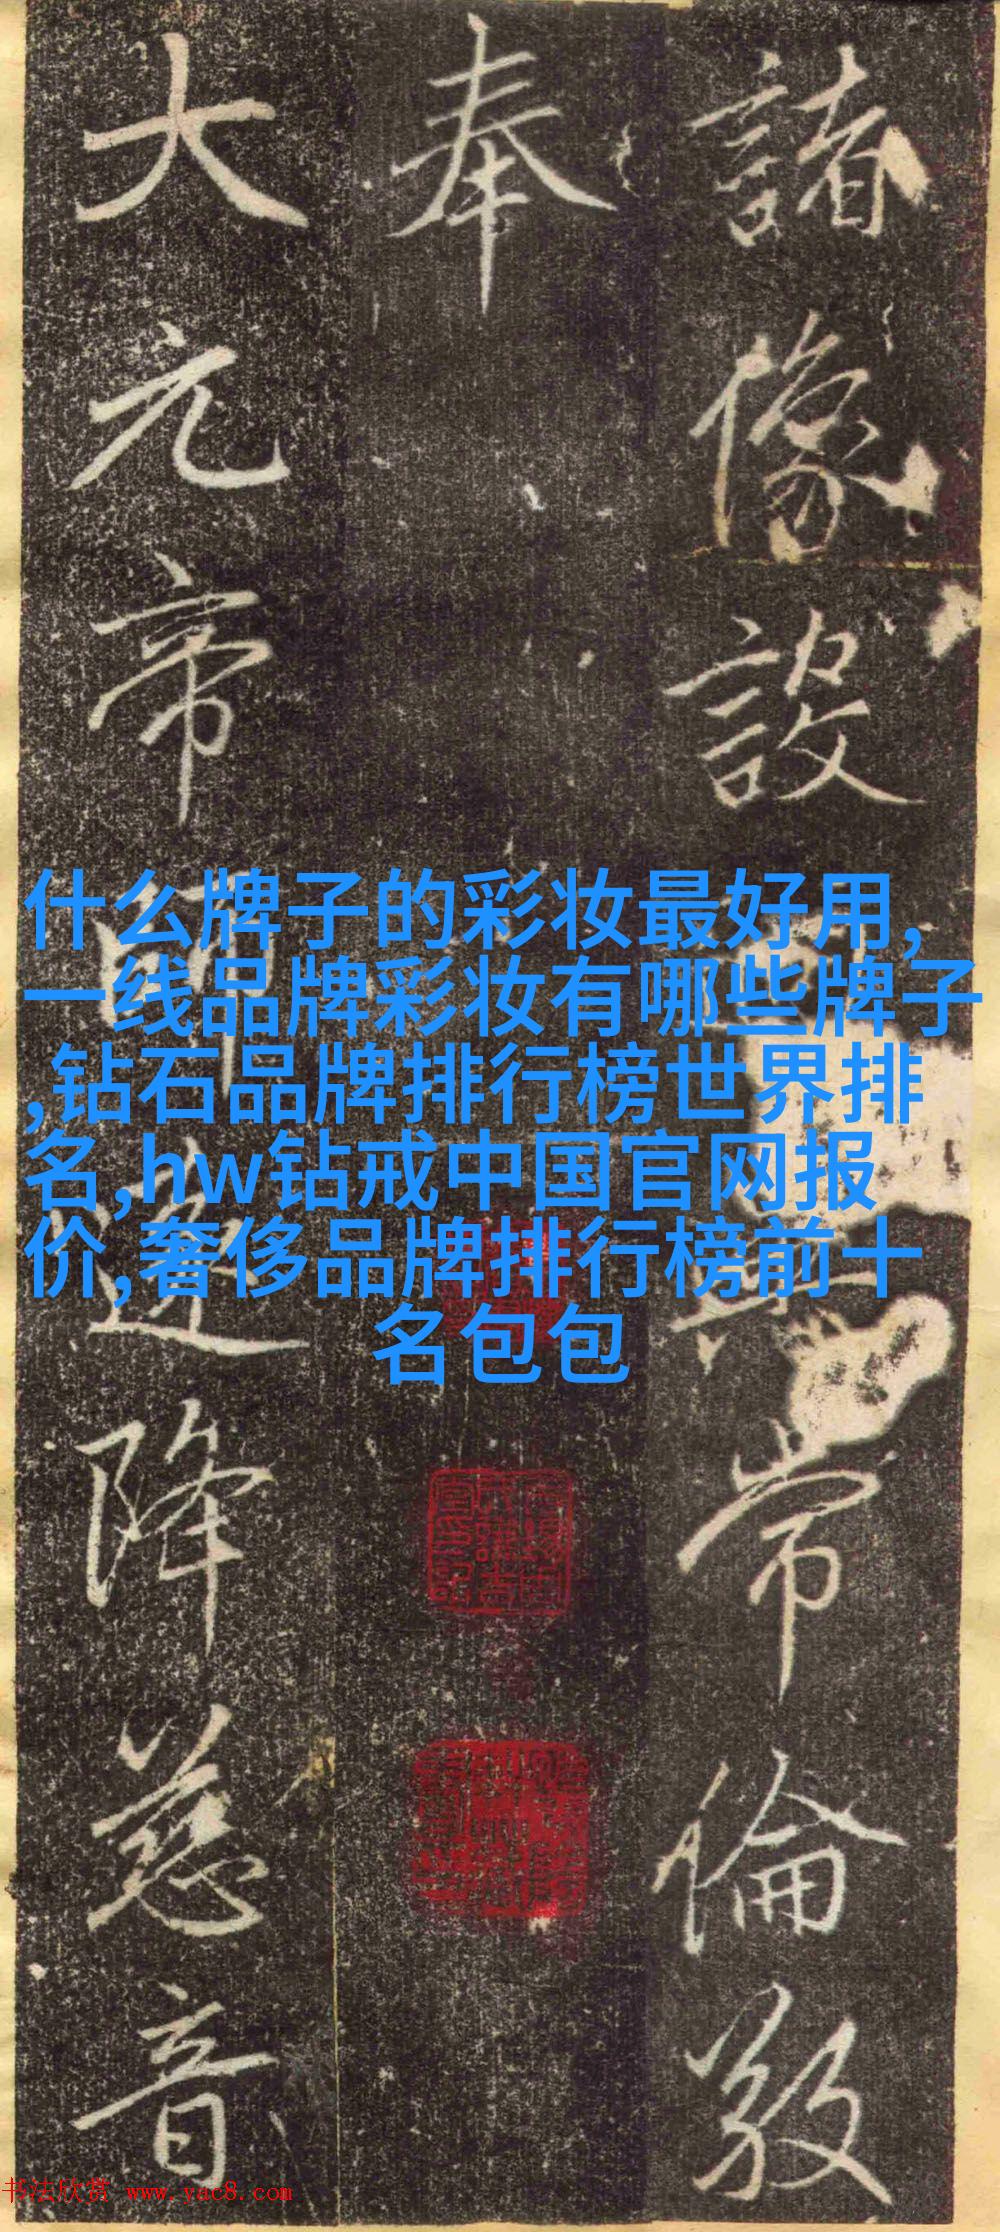 諸像設
常倫敎
奉
大元帝師
降慈音
什么牌子的彩妆最好用,
一线品牌彩妆有哪些牌子
,钻石品牌排行榜世界排
名,hw钻戒中国官网报
价,奢侈品牌排行榜前十
名包包
书法欣赏 www.yac8.com